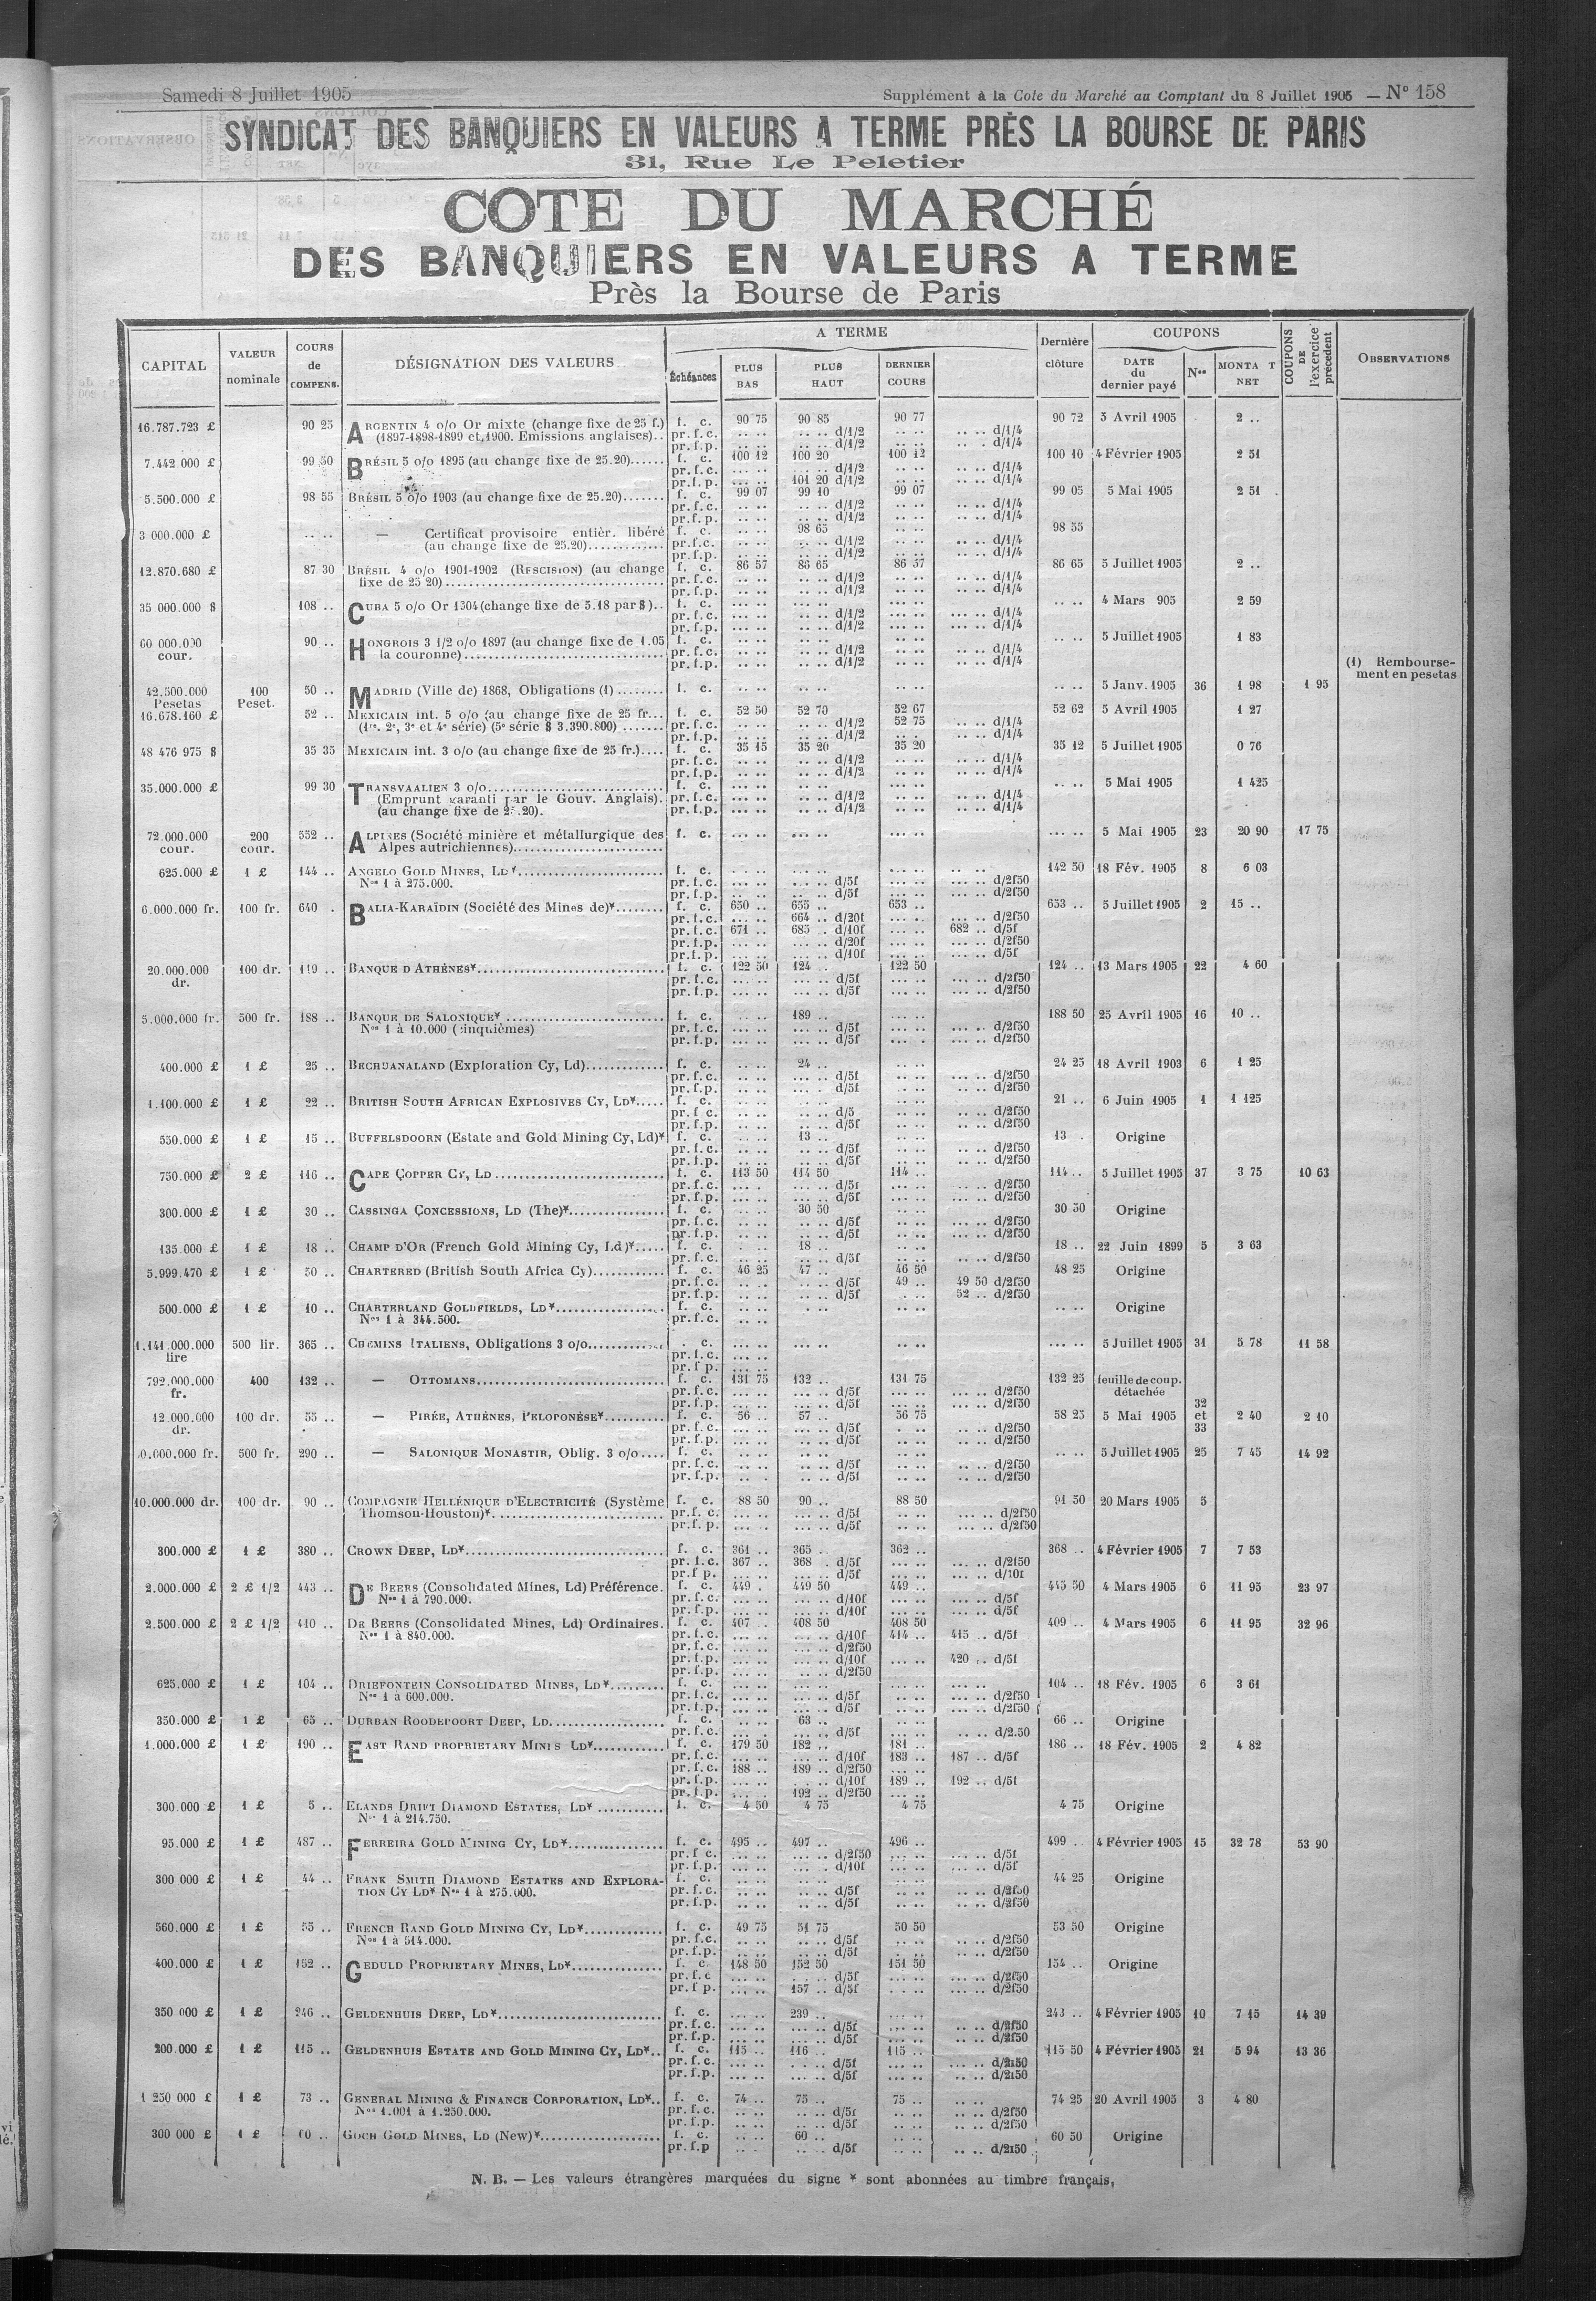 Samedi 8 Juillet 1905
Supplément à la Cote du Marché au Comptant du 8 Juillet 1905 — N° 158
SYNDICAT DES BANQUIERS EN VALEURS A TERME PRÈS LA BOURSE DE PARIS
31, Rue Le Peletier
COTE DU MARCHÉ
DES BANQUIERS EN VALEURS A TERME
Près la Bourse de Paris
CAPITAL VALEUR nominale COURS de COMPENS. DÉSIGNATION DES VALEURS A TERME Échéances PLUS BAS PLUS HAUT DERNIER COURS Dernière clôture COUPONS DATE du dernier payé Nos MONTA T NET COUPONS DE l'exercice précédent OBSERVATIONS
16.787.723 £ 90 25 ARGENTIN 4 o/o Or mixte (change fixe de 25 f.) f. c. 90 75 90 85 90 77 90 72 3 Avril 1905 2 ..
(1897-1898-1899 et 1900. Emissions anglaises).. pr. f.c. .. .. .. .. d/1/2 .. .. .. .. d/1/4
pr. f.p. .. .. .. .. d/1/2 .. .. .. .. d/1/4
7.442.000 £ 99 50 BRÉSIL 5 o/o 1895 (au change fixe de 25.20)...... f. c. 100 12 100 20 100 12 100 10 4 Février 1905 2 51
pr. f.c. d/1/2 d/1/4
pr. f.p. 101 20 d/1/2 d/1/4
5.500.000 £ 98 55 BRÉSIL 5 o/o 1903 (au change fixe de 25.20)....... f. c. 99 07 99 10 99 07 99 05 5 Mai 1905 2 51
pr. f.c. d/1/2 d/1/4
pr. f.p. d/1/2 d/1/4
3 000.000 £ .. .. — Certificat provisoire entièr. libéré f. c. 98 65 98 55
(au change fixe de 25.20)............. pr. f.c. d/1/2 d/1/4
pr. f.p. d/1/2 d/1/4
12.870.680 £ 87 30 BRÉSIL 4 o/o 1901-1902 (RESCISION) (au change f. c. 86 57 86 65 86 57 86 65 5 Juillet 1905 2 ..
fixe de 25 20)................ pr. f.c. d/1/2 d/1/4
pr. f.p. d/1/2 d/1/4
35 000.000 $ 108 .. CUBA 5 o/o Or 1904 (change fixe de 5.18 par $).. f. c. .. .. 4 Mars 905 2 59
pr. f.c. d/1/2 d/1/4
pr. f.p. d/1/2 d/1/4
60 000.000 cour. 90 .. HONGROIS 3 1/2 o/o 1897 (au change fixe de 1.05 f. c. .. .. 5 Juillet 1905 1 83
la couronne)................ pr. f.c. d/1/2 d/1/4
pr. f.p. d/1/2 d/1/4
(1) Rembourse-
ment en pesetas
42.500.000 Pesetas 100 Peset. 50 .. MADRID (Ville de) 1868, Obligations (1)........ f. c. .. .. 5 Janv. 1905 36 1 98 1 95
16.678.160 £ 52 .. MEXICAIN int. 5 o/o (au change fixe de 25 fr... f. c. 52 50 52 70 52 67 52 62 5 Avril 1905 1 27
(1re, 2e, 3e et 4e série) (5e série $ 3.390.800)....... pr. f.c. d/1/2 52 75 d/1/4
pr. f.p. d/1/2 d/1/4
48 476 975 $ 35 35 MEXICAIN int. 3 o/o (au change fixe de 25 fr.).... f. c. 35 15 35 20 35 20 35 12 5 Juillet 1905 0 76
pr. f.c. d/1/2 d/1/4
pr. f.p. d/1/2 d/1/4
35.000.000 £ 99 30 TRANSVAALIEN 3 o/o................ f. c. .. .. 5 Mai 1905 1 425
(Emprunt garanti par le Gouv. Anglais). pr. f.c. d/1/2 d/1/4
(au change fixe de 25.20). pr. f.p. d/1/2 d/1/4
72.000.000 cour. 200 cour. 552 .. ALPINES (Société minière et métallurgique des f. c. 5 Mai 1905 23 20 90 17 75
Alpes autrichiennes)................
625.000 £ 1 £ 144 .. ANGELO GOLD MINES, Ld ¥................ f. c. 142 50 18 Fév. 1905 8 6 03
Nos 1 à 275.000. pr. f.c. d/5f d/2f50
pr. f.p. d/5f d/2f50
6.000.000 fr. 100 fr. 640 . BALIA-KARAÏDIN (Société des Mines de)¥........ f. c. 650 .. 655 .. 653 .. 653 .. 5 Juillet 1905 2 15 ..
pr. f.c. 664 .. d/20f d/2f50
pr. f.c. 671 .. 685 .. d/10f 682 .. d/5f
pr. f.p. d/20f d/2f50
pr. f.p. d/10f d/5f
20.000.000 dr. 100 dr. 119 .. BANQUE D'ATHÈNES¥................ f. c. 122 50 124 .. 122 50 124 .. 13 Mars 1905 22 4 60
pr. f.c. d/5f d/2f50
pr. f.p. d/5f d/2f50
5.000.000 fr. 500 fr. 188 .. BANQUE DE SALONIQUE¥ ................ f. c. 189 .. 188 50 25 Avril 1905 16 10 ..
Nos 1 à 10.000 (cinquièmes) pr. f.c. d/5f d/2f50
pr. f.p. d/5f d/2f50
400.000 £ 1 £ 25 .. BECHUANALAND (Exploration Cy, Ld)............. f. c. 24 .. 24 25 18 Avril 1903 6 1 25
pr. f.c. d/5f d/2f50
pr. f.p. d/5f d/2f50
1.100.000 £ 1 £ 22 .. BRITISH SOUTH AFRICAN EXPLOSIVES CY, LD¥..... f. c. 21 .. 6 Juin 1905 1 1 125
pr. f c. d/5 d/2f50
pr. f.p. d/5f d/2f50
550.000 £ 1 £ 15 .. BUFFELSDOORN (Estate and Gold Mining Cy, Ld)¥ f. c. 13 .. 13 . Origine
pr. f.c. d/5f d/2f50
pr. f.p. d/5f d/2f50
750.000 £ 2 £ 116 .. CAPE COPPER CY, LD ................ f. c. 113 50 114 50 114 .. 114 .. 5 Juillet 1905 37 3 75 10 63
pr. f.c. d/5f d/2f50
pr. f.p. d/5f d/2f50
300.000 £ 1 £ 30 .. CASSINGA CONCESSIONS, LD (The)¥................ f. c. 30 50 30 50 Origine
pr. f.c. d/5f d/2f50
pr. f.p. d/5f d/2f50
135.000 £ 1 £ 18 .. CHAMP D'OR (French Gold Mining Cy, Ld)¥..... f. c. 18 .. 18 .. 22 Juin 1899 5 3 63
pr. f.c. d/5f d/2f50
5.999.470 £ 1 £ 50 .. CHARTERED (British South Africa Cy)............ f. c. 46 25 47 .. 46 50 48 25 Origine
pr. f.c. d/5f 49 .. 49 50 d/2f50
pr. f.p. d/5f 52 .. d/2f50
500.000 £ 1 £ 10 .. CHARTERLAND GOLDFIELDS, LD¥................ f. c. .. .. Origine
Nos 1 à 344.500. pr. f.c.
1.141.000.000 lire 500 lir. 365 .. CHEMINS ITALIENS, Obligations 3 o/o............ . c. 5 Juillet 1905 31 5 78 11 58
pr. f.c.
pr. f p.
792.000.000 fr. 400 132 .. — OTTOMANS................ f. c. 131 75 132 .. 131 75 132 25 feuille de coup. détachée
pr. f.c. d/5f d/2f50
pr. f.p. d/5f d/2f50
12.000.000 dr. 100 dr. 55 .. — PIRÉE, ATHÈNES, PELOPONÈSE¥.......... f. c. 56 .. 57 .. 56 75 58 25 5 Mai 1905 32 et 33 2 40 2 10
pr. f.c. d/5f d/2f50
pr. f.p. d/5f d/2f50
0.000.000 fr. 500 fr. 290 .. — SALONIQUE MONASTIR, Oblig. 3 o/o.... f. c. .. .. 5 Juillet 1905 25 7 45 14 92
pr. f.c. d/5f d/2f50
pr. f.p. d/5f d/2f50
10.000.000 dr. 100 dr. 90 .. COMPAGNIE HELLÉNIQUE D'ELECTRICITÉ (Système f. c. 88 50 90 .. 88 50 91 50 20 Mars 1905 5
Thomson-Houston)¥................ pr. f. c. d/5f d/2f50
pr. f. p. d/5f d/2f50
300.000 £ 1 £ 380 .. CROWN DEEP, LD¥................ f. c. 361 .. 365 . 362 .. 368 .. 4 Février 1905 7 7 53
pr. f.c. 367 .. 368 . d/5f d/2f50
pr. f p. d/5f d/10f
2.000.000 £ 2 £ 1/2 443 .. DE BEERS (Consolidated Mines, Ld) Préférence. f. c. 449 . 449 50 449 .. 445 50 4 Mars 1905 6 11 95 23 97
Nos 1 à 790.000. pr. f.c. d/10f d/5f
pr. f.p. d/10f d/5f
2.500.000 £ 2 £ 1/2 410 .. DE BEERS (Consolidated Mines, Ld) Ordinaires. f. c. 407 .. 408 50 408 50 409 .. 4 Mars 1905 6 11 95 32 96
Nos 1 à 840.000. pr. f.c. d/10f 414 .. 415 .. d/5f
pr. f.c. d/2f50
pr. f.p. d/10f 420 .. d/5f
pr. f.p. d/2f50
625.000 £ 1 £ 104 .. DRIEFONTEIN CONSOLIDATED MINES, LD¥......... f. c. 104 .. 18 Fév. 1905 6 3 61
Nos 1 à 600.000. pr. f.c. d/5f d/2f50
pr. f.p. d/5f d/2f50
350.000 £ 1 £ 65 .. DURBAN ROODEPOORT DEEP, LD................ f. c. 63 .. 66 .. Origine
pr. f.c. d/5f d/2.50
1.000.000 £ 1 £ 190 .. EAST RAND PROPRIETARY MINES LD¥............ f. c. 179 50 182 .. 181 .. 186 .. 18 Fév. 1905 2 4 82
pr. f.c. d/10f 183 .. 187 .. d/5f
pr. f.c. 188 .. 189 .. d/2f50
pr. f.p. d/10f 189 .. 192 .. d/5f
pr. f.p. 192 .. d/2f50
300.000 £ 1 £ 5 .. ELANDS DRIFT DIAMOND ESTATES, LD¥ ........... f. c. 4 50 4 75 4 75 4 75 Origine
Nos 1 à 214.750.
95.000 £ 1 £ 487 .. FERREIRA GOLD MINING CY, LD¥................ f. c. 495 .. 497 .. 496 .. 499 .. 4 Février 1905 15 32 78 53 90
pr. f c. d/2f50 d/5f
pr. f.p. d/10f d/5f
300 000 £ 1 £ 44 .. FRANK SMITH DIAMOND ESTATES AND EXPLORA- f. c. 44 25 Origine
TION CY LD¥ Nos 1 à 275.000. pr. f.c. d/5f d/2f50
pr. f.p. d/5f d/2f50
560.000 £ 1 £ 55 .. FRENCH RAND GOLD MINING CY, LD¥............. f. c. 49 75 51 75 50 50 53 50 Origine
Nos 1 à 514.000. pr. f.c. d/5f d/2f50
pr. f.p. d/5f d/2f50
400.000 £ 1 £ 152 .. GEDULD PROPRIETARY MINES, LD¥............... f. c 148 50 152 50 151 50 154 .. Origine
pr. f.c d/5f d/2f50
pr. f p. 157 .. d/5f d/2f50
350 000 £ 1 £ 246 .. GELDENHUIS DEEP, LD¥................ f. c. 239 .. 243 .. 4 Février 1905 10 7 15 14 39
pr. f.c. d/5f d/2f50
pr. f.p. d/5f d/2f50
200.000 £ 1 £ 115 .. GELDENHUIS ESTATE AND GOLD MINING CY, LD¥.. f. c. 115 .. 116 .. 115 .. 115 50 4 Février 1905 21 5 94 13 36
pr. f.c. d/5f d/2f50
pr. f.p. d/5f d/2f50
1 250 000 £ 1 £ 73 .. GENERAL MINING & FINANCE CORPORATION, LD¥.. f. c. 74 .. 75 .. 75 .. 74 25 20 Avril 1905 3 4 80
Nos 1.001 à 1.250.000. pr. f.c. d/5f d/2f50
pr. f.p. d/5f d/2f50
300 000 £ 1 £ 60 .. GOCH GOLD MINES, LD (New)¥................ f. c. 60 .. 60 50 Origine
pr. f.p d/5f d/2f50
N. B. — Les valeurs étrangères marquées du signe ¥ sont abonnées au timbre français,